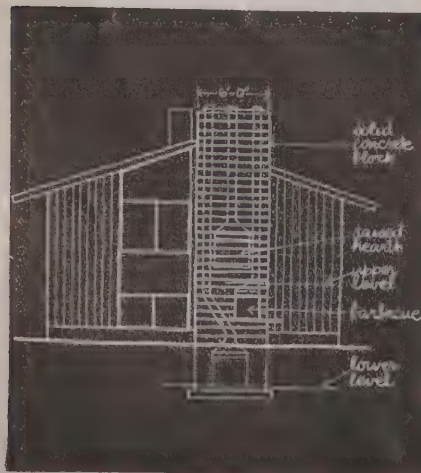 6'-0"
solid
concrete
block
raised
hearth
upper
level
barbecue
lower
level